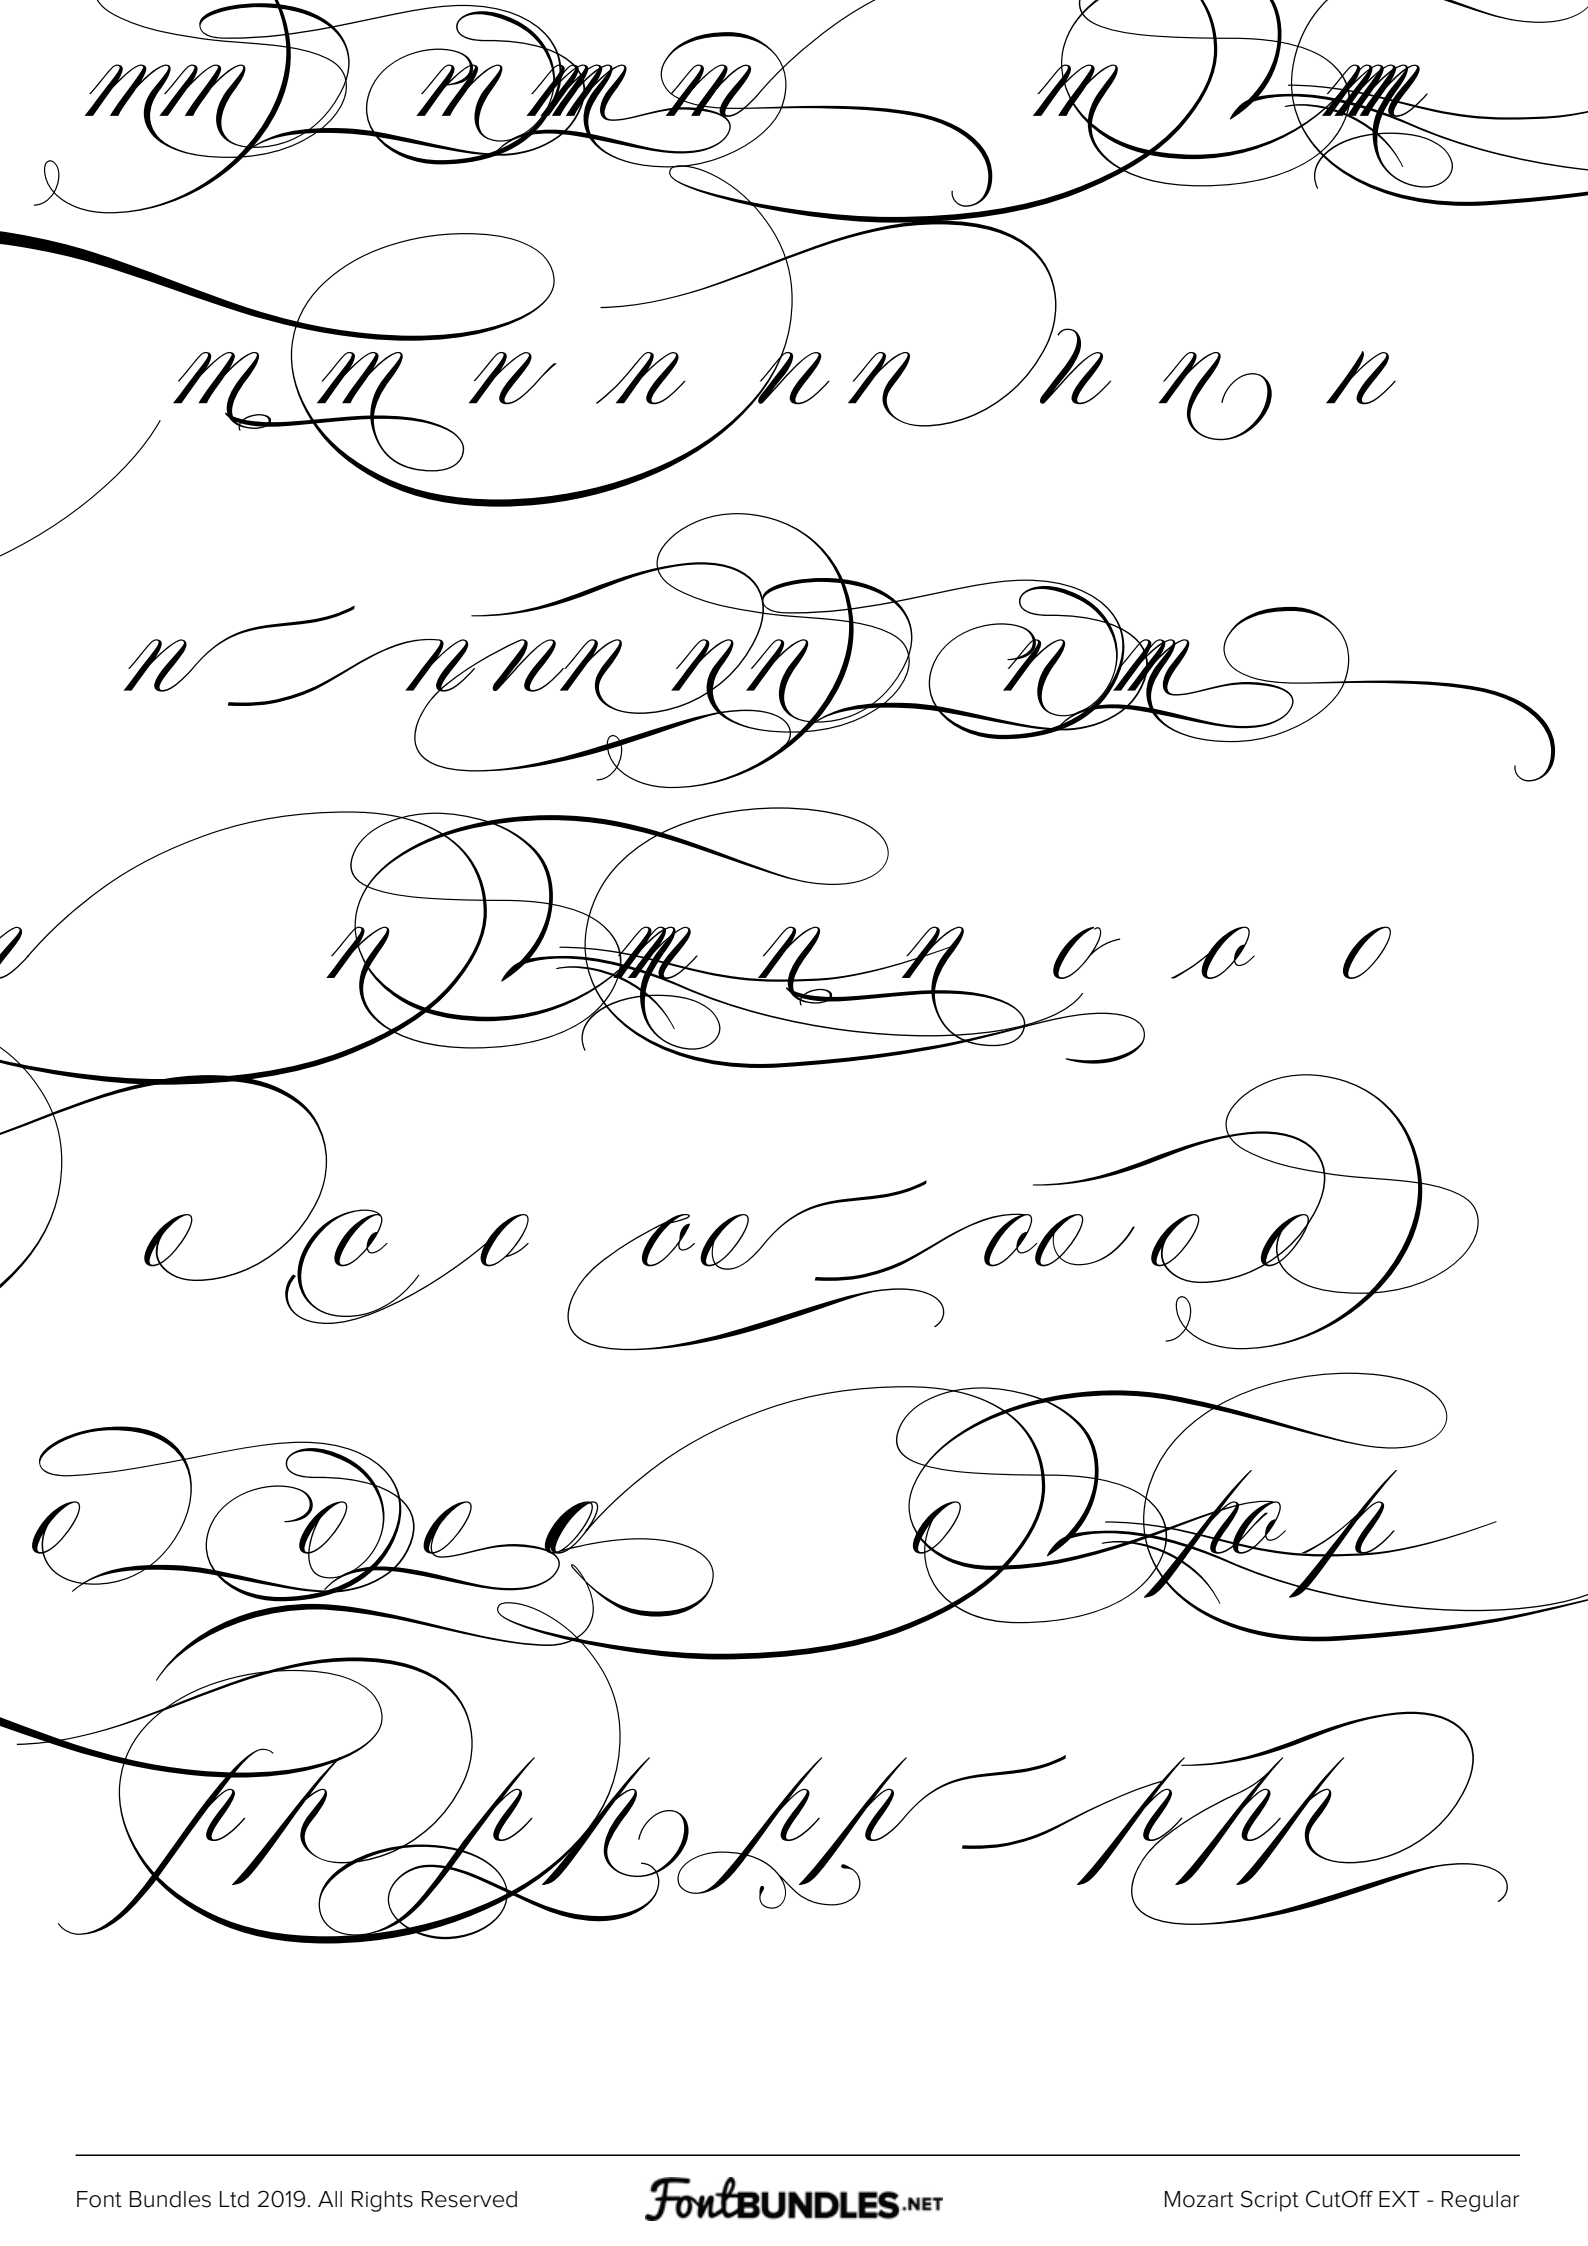 m m m m m m m m
m m n n n n n n n
n n n n n n n m
n n m n n o o o
o o o o o o o o o
o o o o o p o p
p p p p p p p p p
Font Bundles Ltd 2019. All Rights Reserved
FontBUNDLES.NET
Mozart Script CutOff EXT - Regular